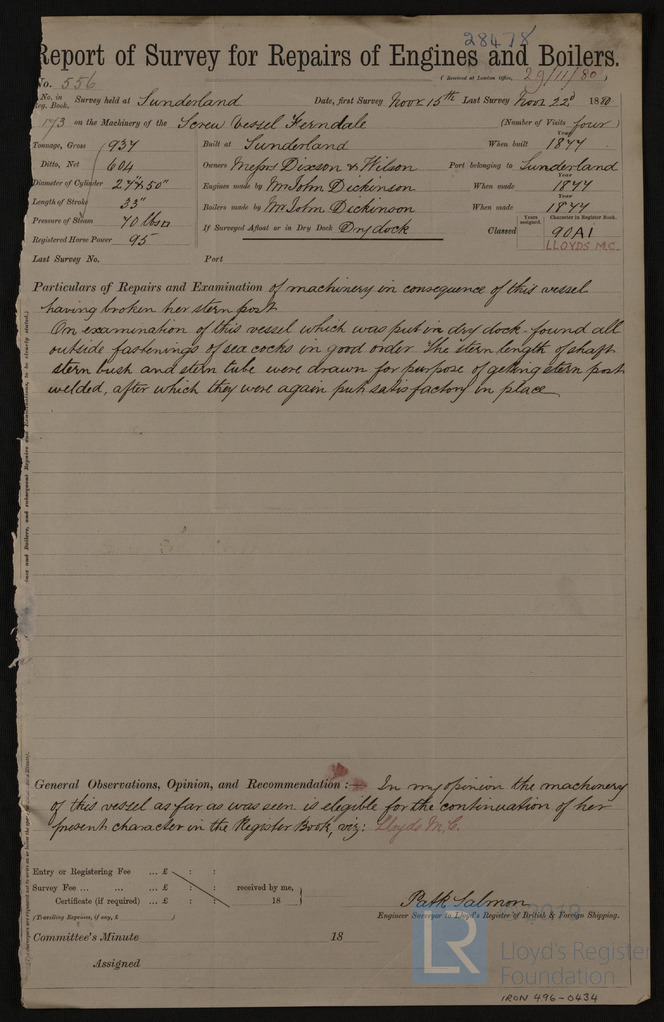 28478
Report of Survey for Repairs of Engines and Boilers.
No. 556 (Received at London Office, 29/11/80)
No. in Reg. Book. Survey held at Sunderland Date, first Survey Novr 15th Last Survey Novr 22d 1880
173 on the Machinery of the Screw Vessel Ferndale (Number of Visits four)
Tonnage, Gross 937 Built at Sunderland When built Year 1877
Ditto, Net 604 Owners Messrs Dixson & Wilson Port belonging to Sunderland
Diameter of Cylinder 27" & 50" Engines made by Mr John Dickinson When made Year 1877
Length of Stroke 33" Boilers made by Mr John Dickinson When made Year 1877
Pressure of Steam 70 lbs If Surveyed Afloat or in Dry Dock Dry dock Classed Years assigned. Character in Register Book. 90A1
Registered Horse Power 95 LLOYDS M.C.
Last Survey No. Port
Particulars of Repairs and Examination of machinery in consequence of this vessel
having broken her stern post
On examination of this vessel which was put in dry dock - found all
outside fastenings of sea cocks in good order. The stern length of shaft
stern bush and stern tube were drawn for purpose of getting stern post
welded, after which they were again put satisfactory in place
General Observations, Opinion, and Recommendation :— In my opinion the machinery
of this vessel as far as was seen is eligible for the continuation of her
present character in the Register Book, viz: Lloyds M.C.
Entry or Registering Fee ... £ : :
Survey Fee ... ... ... £ : : received by me,
Certificate (if required) ... £ : : 18
(Travelling Expenses, if any, £ )
Patk Salmon
Engineer Surveyor to Lloyd's Register of British & Foreign Shipping.
Committee's Minute 18
Assigned
2019
LR
Lloyd's Register
Foundation
IRON 496-0434